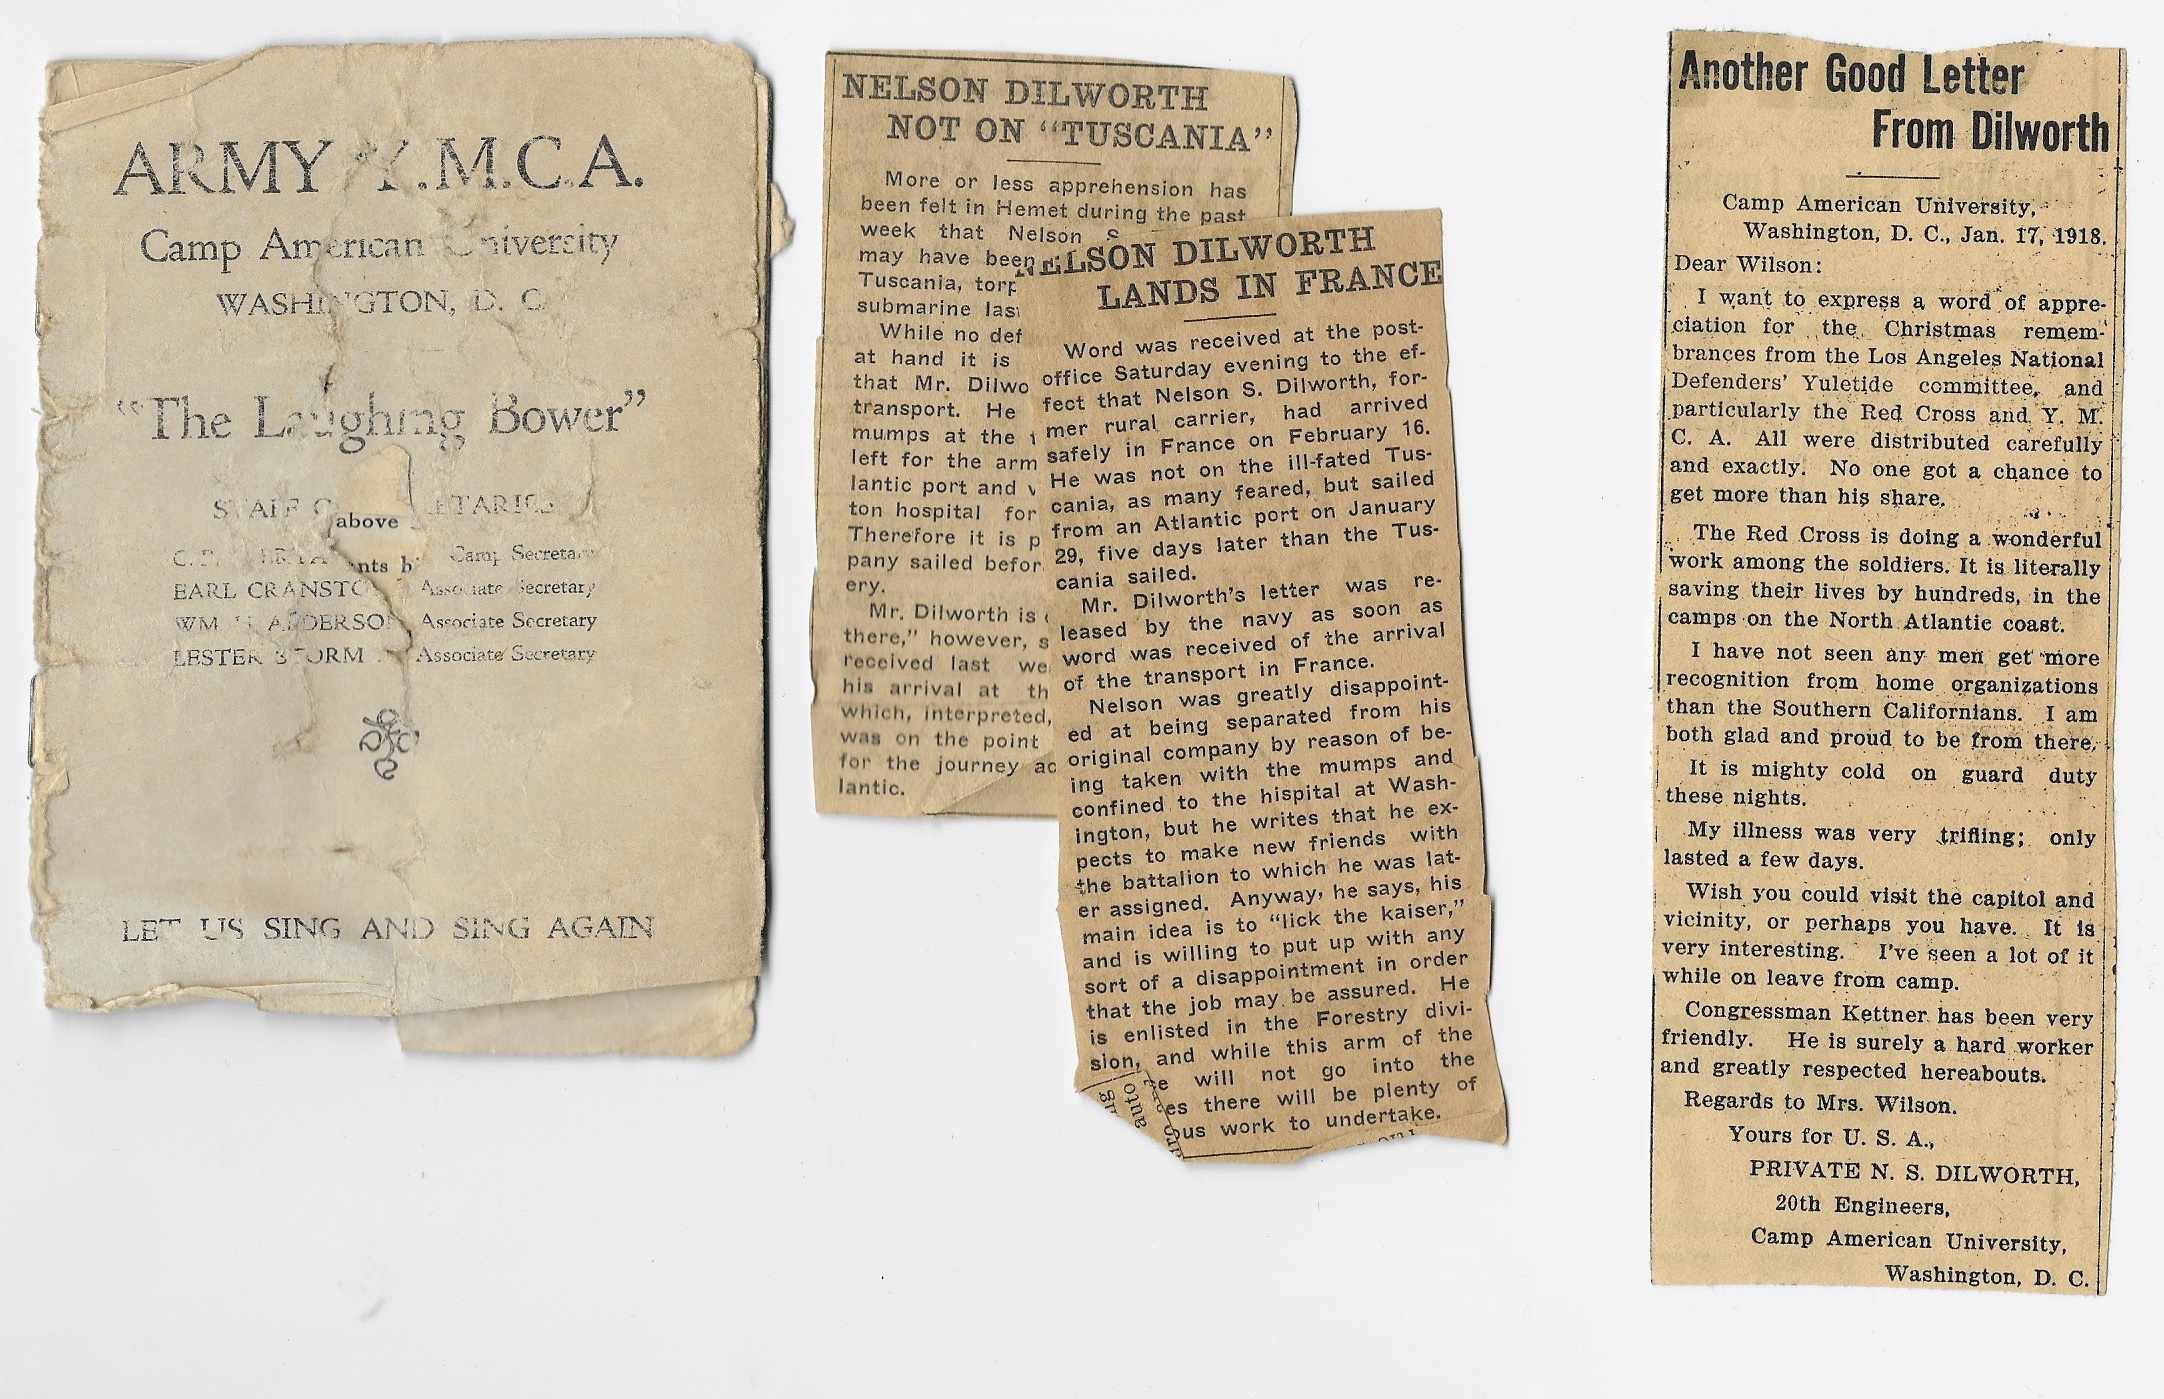 ARMY Y.M.C.A.
Camp American University
WASHINGTON, D. C
"The Laughing Bower"
STAFF
above
nts
Camp Secretary
EARL CRANSTO Associate Secretary
WM ANDERSON Associate Secretary
LESTER STORM Associate Secretary
LET US SING AND SING AGAIN
NELSON DILWORTH
NOT ON "TUSCANIA"
More or less apprehension has
been felt in Hemet during the past
week that Nelson S
may have been
Tuscania, torp
submarine las
While no def
at hand it is
that Mr. Dilwo
transport. He
mumps at the
left for the arm
lantic port and
ton hospital for
Therefore it is p
pany sailed befor
ery.
Mr. Dilworth is
there," however, s
received last we
his arrival at th
which, interpreted,
was on the point
for the journey ac
lantic.
NELSON DILWORTH
LANDS IN FRANCE
Word was received at the post-
office Saturday evening to the ef-
fect that Nelson S. Dilworth, for-
mer rural carrier, had arrived
safely in France on February 16.
He was not on the ill-fated Tus-
cania, as many feared, but sailed
from an Atlantic port on January
29, five days later than the Tus-
cania sailed.
Mr. Dilworth's letter was re-
leased by the navy as soon as
word was received of the arrival
of the transport in France.
Nelson was greatly disappoint-
ed at being separated from his
original company by reason of be-
ing taken with the mumps and
confined to the hispital at Wash-
ington, but he writes that he ex-
pects to make new friends with
the battalion to which he was lat-
er assigned. Anyway, he says, his
main idea is to "lick the kaiser,"
and is willing to put up with any
sort of a disappointment in order
that the job may be assured. He
is enlisted in the Forestry divi-
sion, and while this arm of the
e will not go into the
es there will be plenty of
ous work to undertake.
auto
Another Good Letter
From Dilworth
Camp American University,
Washington, D. C., Jan. 17, 1918.
Dear Wilson:
I want to express a word of appre-
ciation for the Christmas remem-
brances from the Los Angeles National
Defenders' Yuletide committee, and
particularly the Red Cross and Y. M.
C. A. All were distributed carefully
and exactly. No one got a chance to
get more than his share.
The Red Cross is doing a wonderful
work among the soldiers. It is literally
saving their lives by hundreds, in the
camps on the North Atlantic coast.
I have not seen any men get more
recognition from home organizations
than the Southern Californians. I am
both glad and proud to be from there.
It is mighty cold on guard duty
these nights.
My illness was very trifling; only
lasted a few days.
Wish you could visit the capitol and
vicinity, or perhaps you have. It is
very interesting. I've seen a lot of it
while on leave from camp.
Congressman Kettner has been very
friendly. He is surely a hard worker
and greatly respected hereabouts.
Regards to Mrs. Wilson.
Yours for U. S. A.,
PRIVATE N. S. DILWORTH,
20th Engineers,
Camp American University,
Washington, D. C.